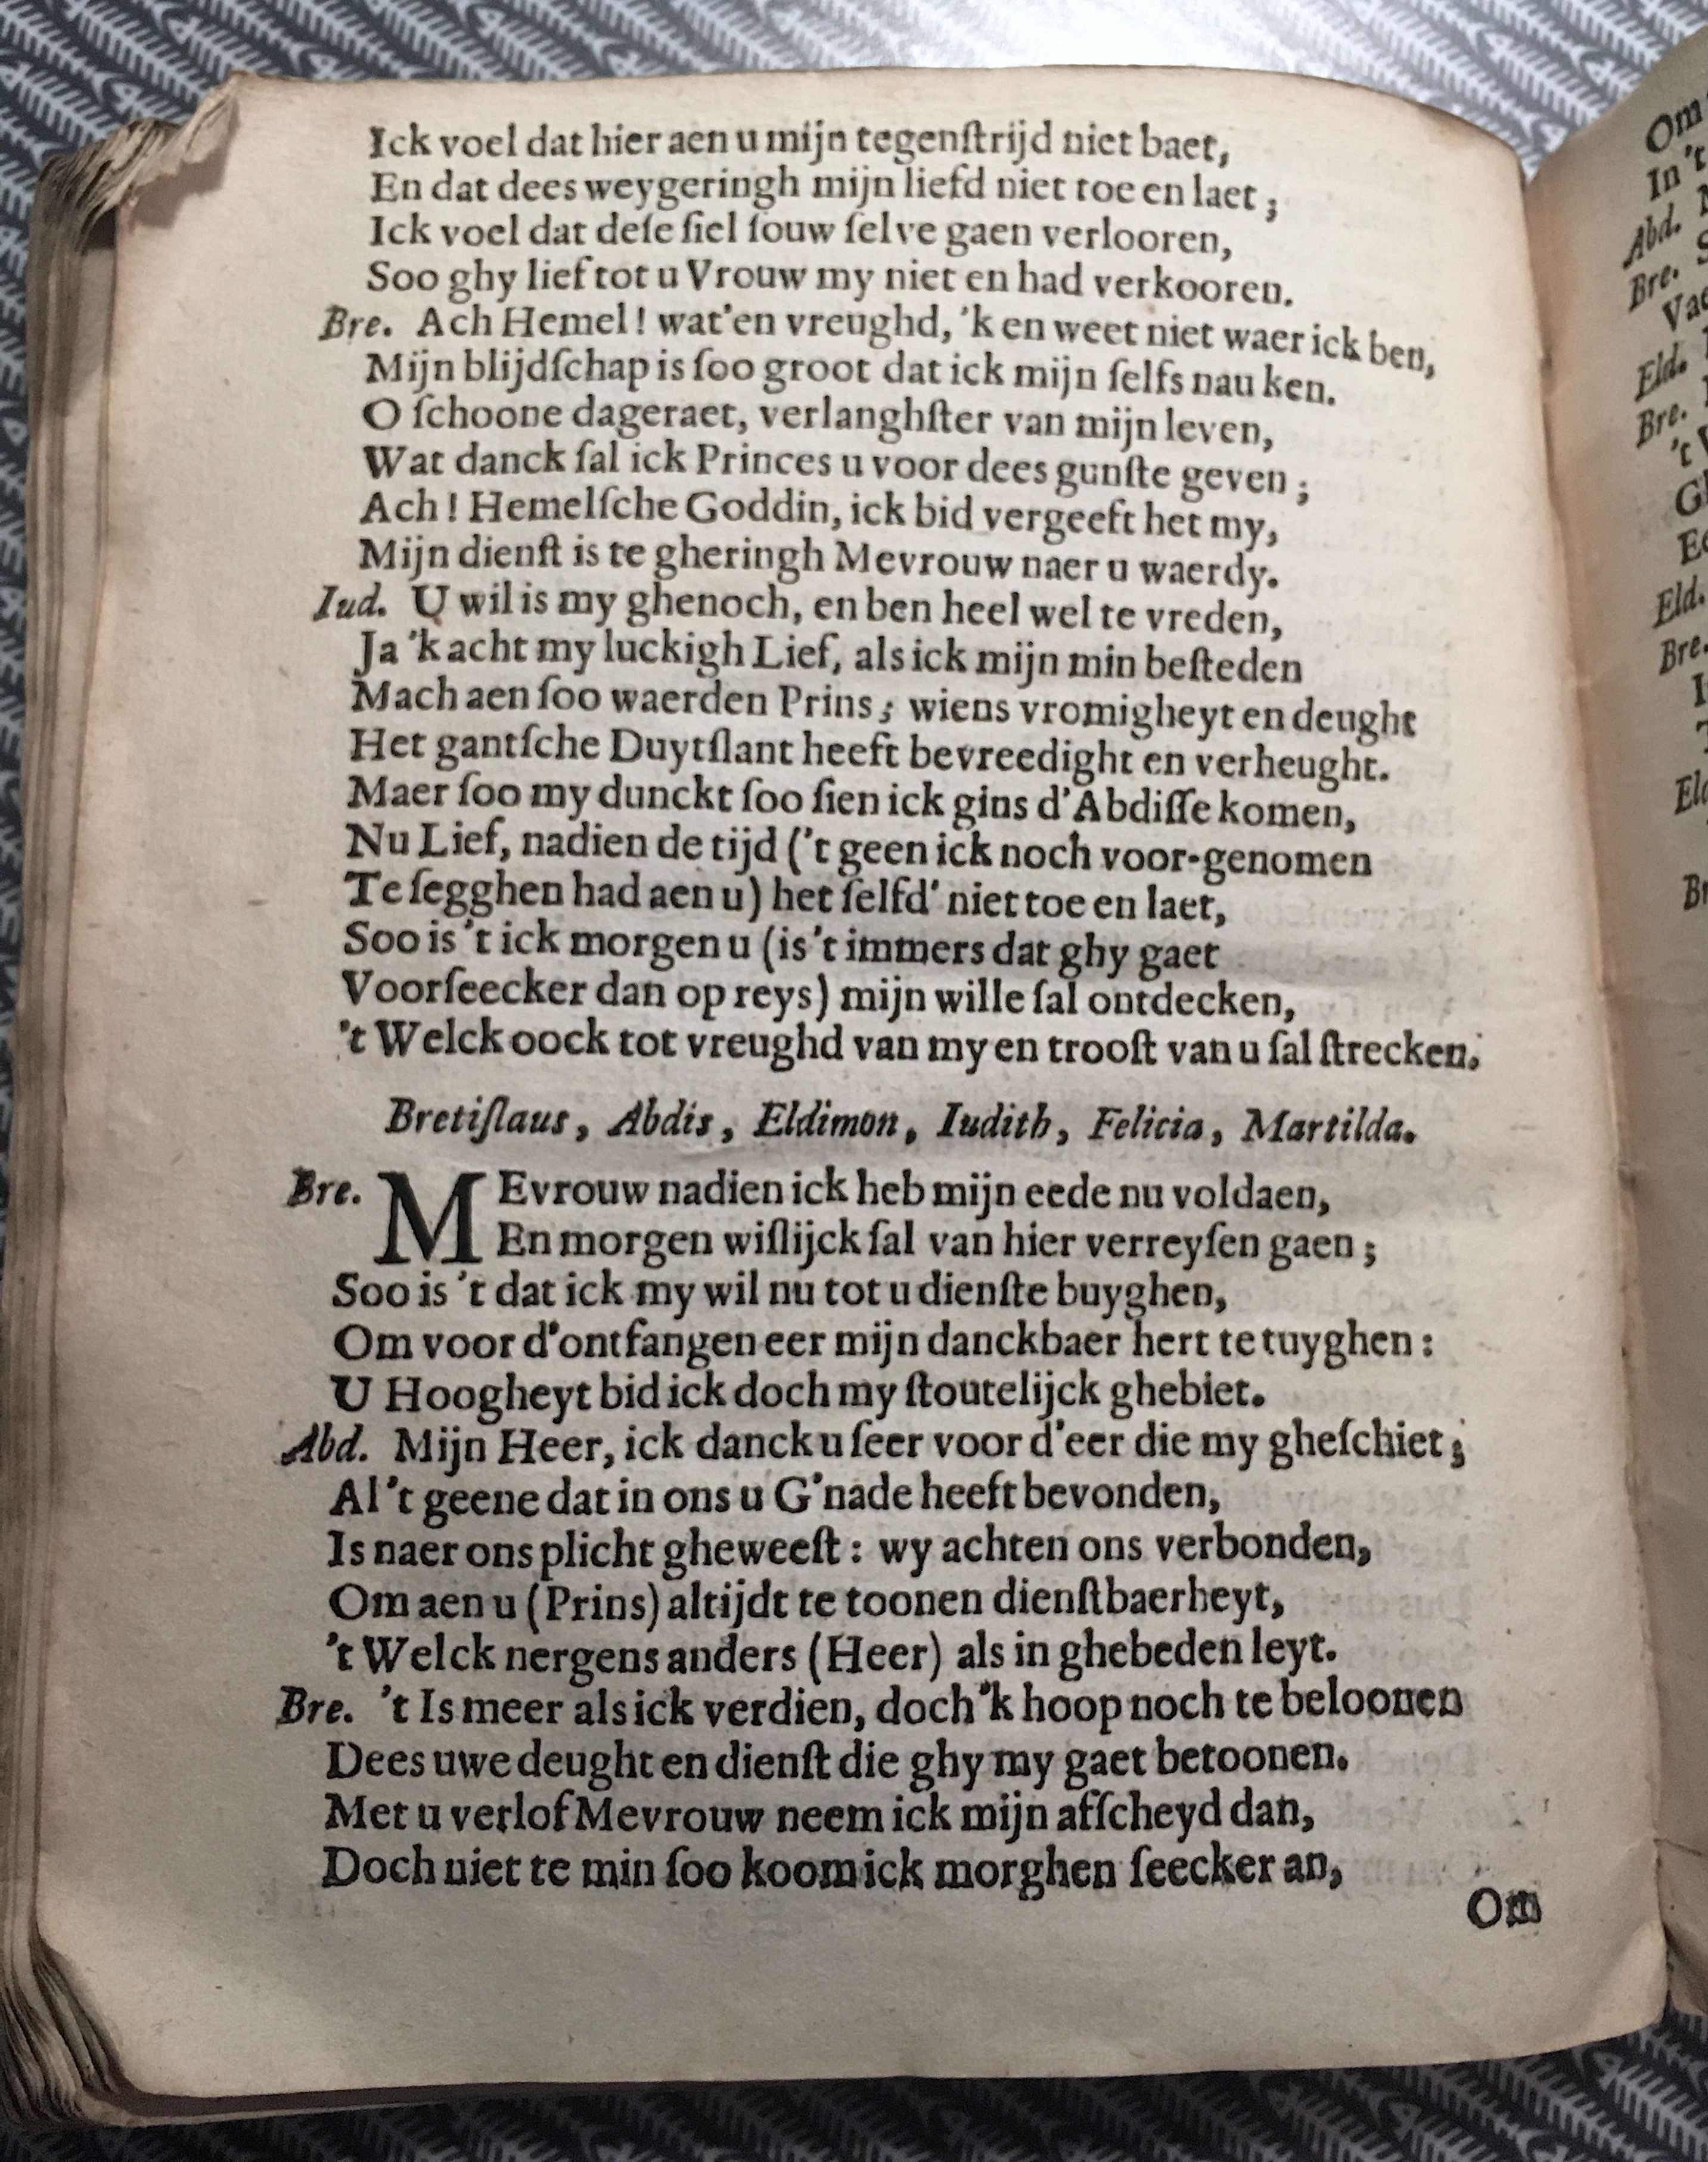 Ick voel dat hier aen u mijn tegenſtrijd niet baet,
En dat dees weygeringh mijn liefd niet toe en laet;
Ick voel dat deſe ſiel ſouw ſelve gaen verlooren,
Soo ghy lief tot u Vrouw my niet en had verkooren.
Bre. Ach Hemel! wat'en vreughd, 'k en weet niet waer ick ben,
Mijn blijdſchap is ſoo groot dat ick mijn ſelfs nau ken.
O ſchoone dageraet, verlanghſter van mijn leven,
Wat danck ſal ick Princes u voor dees gunſte geven;
Ach! Hemelſche Goddin, ick bid vergeeft het my,
Mijn dienſt is te gheringh Mevrouw naer u waerdy.
Iud. U wil is my ghenoch, en ben heel wel te vreden,
Ja 'k acht my luckigh Lief, als ick mijn min beſteden
Mach aen ſoo waerden Prins; wiens vromigheyt en deught
Het gantſche Duytſlant heeft bevreedight en verheught.
Maer ſoo my dunckt ſoo ſien ick gins d'Abdiſſe komen,
Nu Lief, nadien de tijd ('t geen ick noch voor-genomen
Te ſegghen had aen u) het ſelfd' niet toe en laet,
Soo is 't ick morgen u (is 't immers dat ghy gaet
Voorſeecker dan op reys) mijn wille ſal ontdecken,
't Welck oock tot vreughd van my en trooſt van u ſal ſtrecken.
Bretiſlaus, Abdis, Eldimon, Iudith, Felicia, Martilda.
Bre. MEvrouw nadien ick heb mijn eede nu voldaen,
En morgen wiſlijck ſal van hier verreyſen gaen;
Soo is 't dat ick my wil nu tot u dienſte buyghen,
Om voor d'ontfangen eer mijn danckbaer hert te tuyghen:
U Hoogheyt bid ick doch my ſtoutelijck ghebiet.
Abd. Mijn Heer, ick danck u ſeer voor d'eer die my gheſchiet;
Al 't geene dat in ons u G'nade heeft bevonden,
Is naer ons plicht gheweeſt: wy achten ons verbonden,
Om aen u (Prins) altijdt te toonen dienſtbaerheyt,
't Welck nergens anders (Heer) als in ghebeden leyt.
Bre. 't Is meer als ick verdien, doch 'k hoop noch te beloonen
Dees uwe deught en dienſt die ghy my gaet betoonen.
Met u verlof Mevrouw neem ick mijn afſcheyd dan,
Doch niet te min ſoo koom ick morghen ſeecker an,
Om
Om
In 't
Abd.
Bre.
Eld.
Bre.
't
Eld.
Bre.